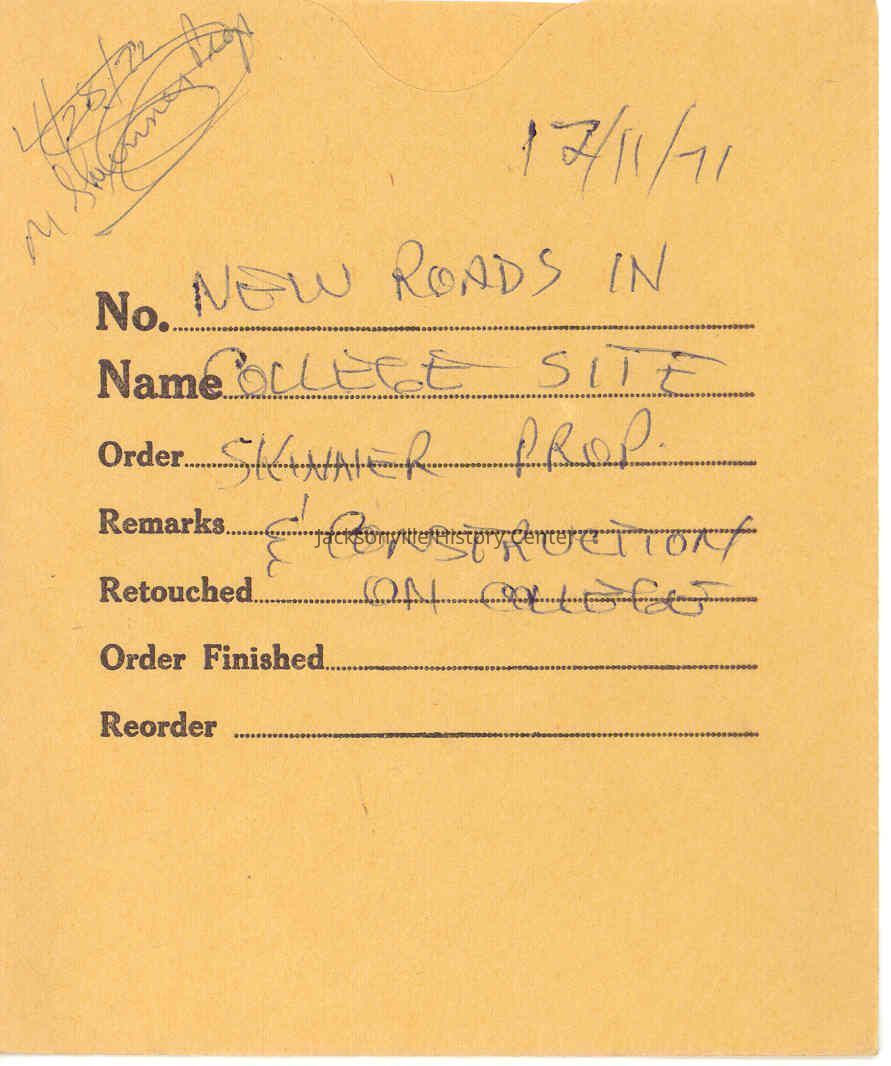 4/28/72
M Skinner Prop
12/11/71
No. NEW ROADS IN
Name COLLEGE SITE
Order SKINNER PROP.
Remarks & CONSTRUCTION
Jacksonville History Center
Retouched ON COLLEGE
Order Finished
Reorder